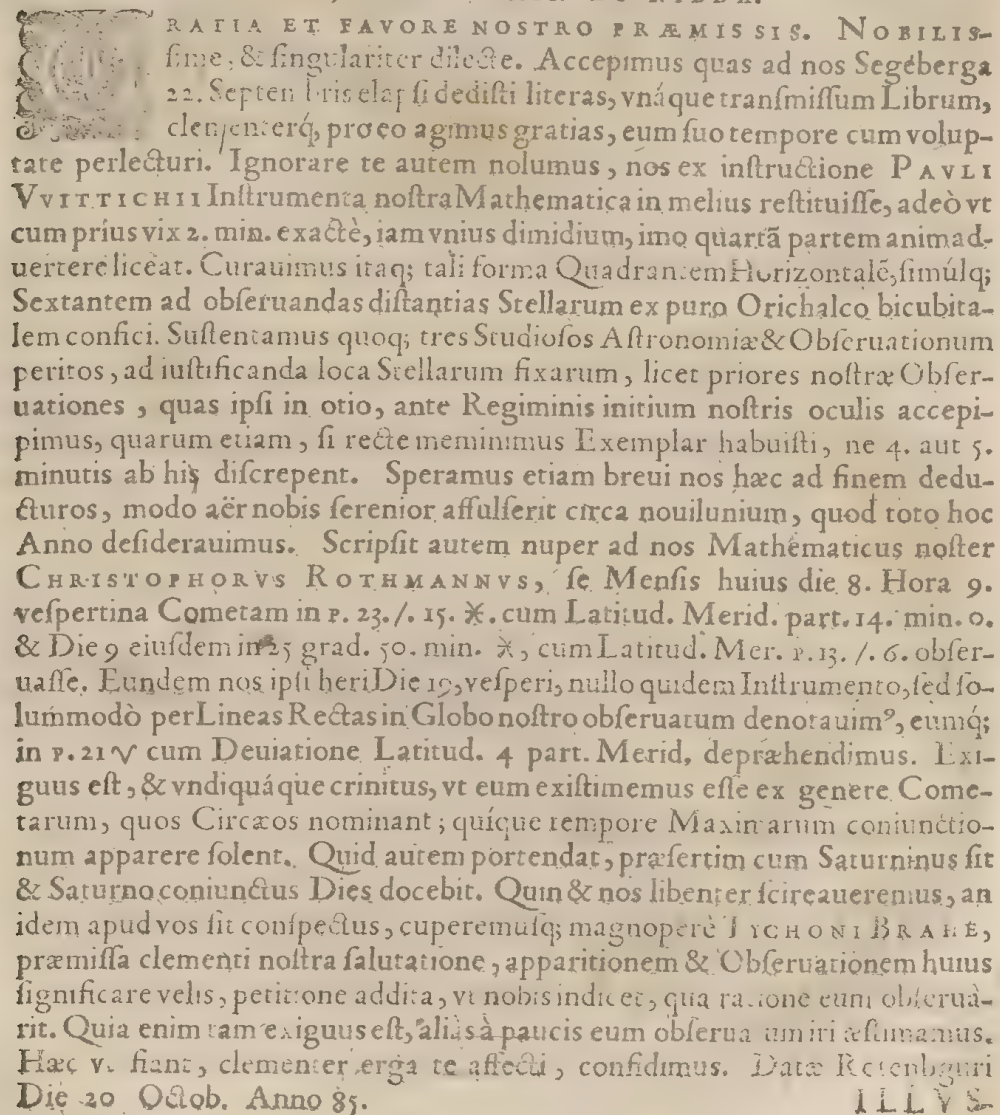 GRATIA ET FAVORE NOSTRO PRÆMISSIS. NOBILIS-
ſime, & ſingulariter dilecte. Accepimus quas ad nos Segéberga
22. Septembris elapſi dediſti literas, vnáque tranſmiſſum Librum,
clementerq́, pro eo agimus gratias, eum ſuo tempore cum volup-
tate perlecturi. Ignorare te autem nolumus, nos ex inſtructione PAVLI
VVITTICHII Inſtrumenta noſtra Mathematica in melius reſtituiſſe, adeò vt
cum príus vix 2. min. exactè, iam vnius dimidium, imo quartā partem animad-
uertere liceat. Curauimus itaq; tali forma Quadrantem Horizontalē, ſimúlq;
Sextantem ad obſeruandas diſtantias Stellarum ex puro Orichalco bicubita-
lem confici. Suſtentamus quoq; tres Studioſos Aſtronomiæ & Obſeruationum
peritos, ad iuſtificanda loca Stellarum fixarum, licet priores noſtræ Obſer-
uationes, quas ipſi in otio, ante Regiminis initium noſtris oculis accepi-
pimus, quarum etiam, ſi recte meminimus Exemplar habuiſti, ne 4. aut 5.
minutis ab his diſcrepent. Speramus etiam breui nos hæc ad finem dedu-
cturos, modo aër nobis ſerenior affulſerit circa nouilunium, quod toto hoc
Anno deſiderauimus. Scripſit autem nuper ad nos Mathematicus noſter
CHRISTOPHORVS ROTHMANNVS, ſe Menſis huius die 8. Hora 9.
veſpertina Cometam in P. 23. /. 15. ♓. cum Latitud. Merid. part. 14. min. 0.
& Die 9 eiuſdem in 25 grad. 50. min. ♓, cum Latitud. Mer. P. 13. /. 6. obſer-
uaſſe. Eundem nos ipſi heri Die 19, veſperi, nullo quidem Inſtrumento, ſed ſo-
lummodò per Lineas Rectas in Globo noſtro obſeruatum denotauimꝰ, eumq́;
in P. 21 ♈ cum Deuiatione Latitud. 4 part. Merid, depræhendimus. Exi-
guus eſt, & vndiquáque crinitus, vt eum exiſtimemus eſſe ex genere Come-
tarum, quos Circæos nominant; quíque tempore Maximarum coniunctio-
num apparere ſolent. Quid autem portendat, præſertim cum Saturninus ſit
& Saturno coniunctus Dies docebit. Quin & nos libenter ſcire aueremus, an
idem apud vos ſit conſpectus, cuperemuſq; magnoperè TYCHONI BRAHE,
præmiſſa clementi noſtra ſalutatione, apparitionem & Obſeruationem huius
ſignificare velis, petitione addita, vt nobis indicet, qua ratione eum obſeruà-
rit. Quia enim tam exiguus eſt, aliàs à paucis eum obſeruatum iri æſtimamus.
Hæc vt fiant, clementer erga te affecti, confidimus. Datæ Rotenburgi
Die 20 Octob. Anno 85.
ILLVS-